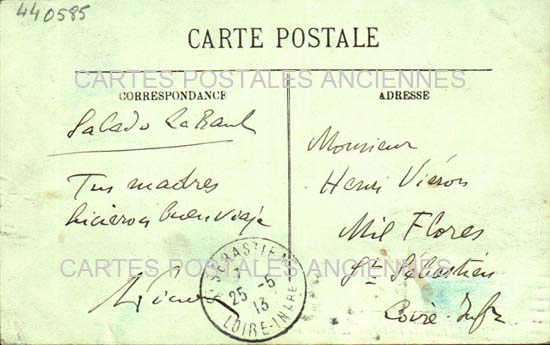 440585
CARTE POSTALE
CARTES POSTALES ANCIENNES
CORRESPONDANCE
ADRESSE
Salado
Tus madres
hicieron buen viaje
Monsieur
Henri Viéron
Mil Flores
St Sébastien
Loire-Infre
CARTES POSTALES ANCIENNES
ST SEBASTIEN
25 -5
13
LOIRE-INFRE